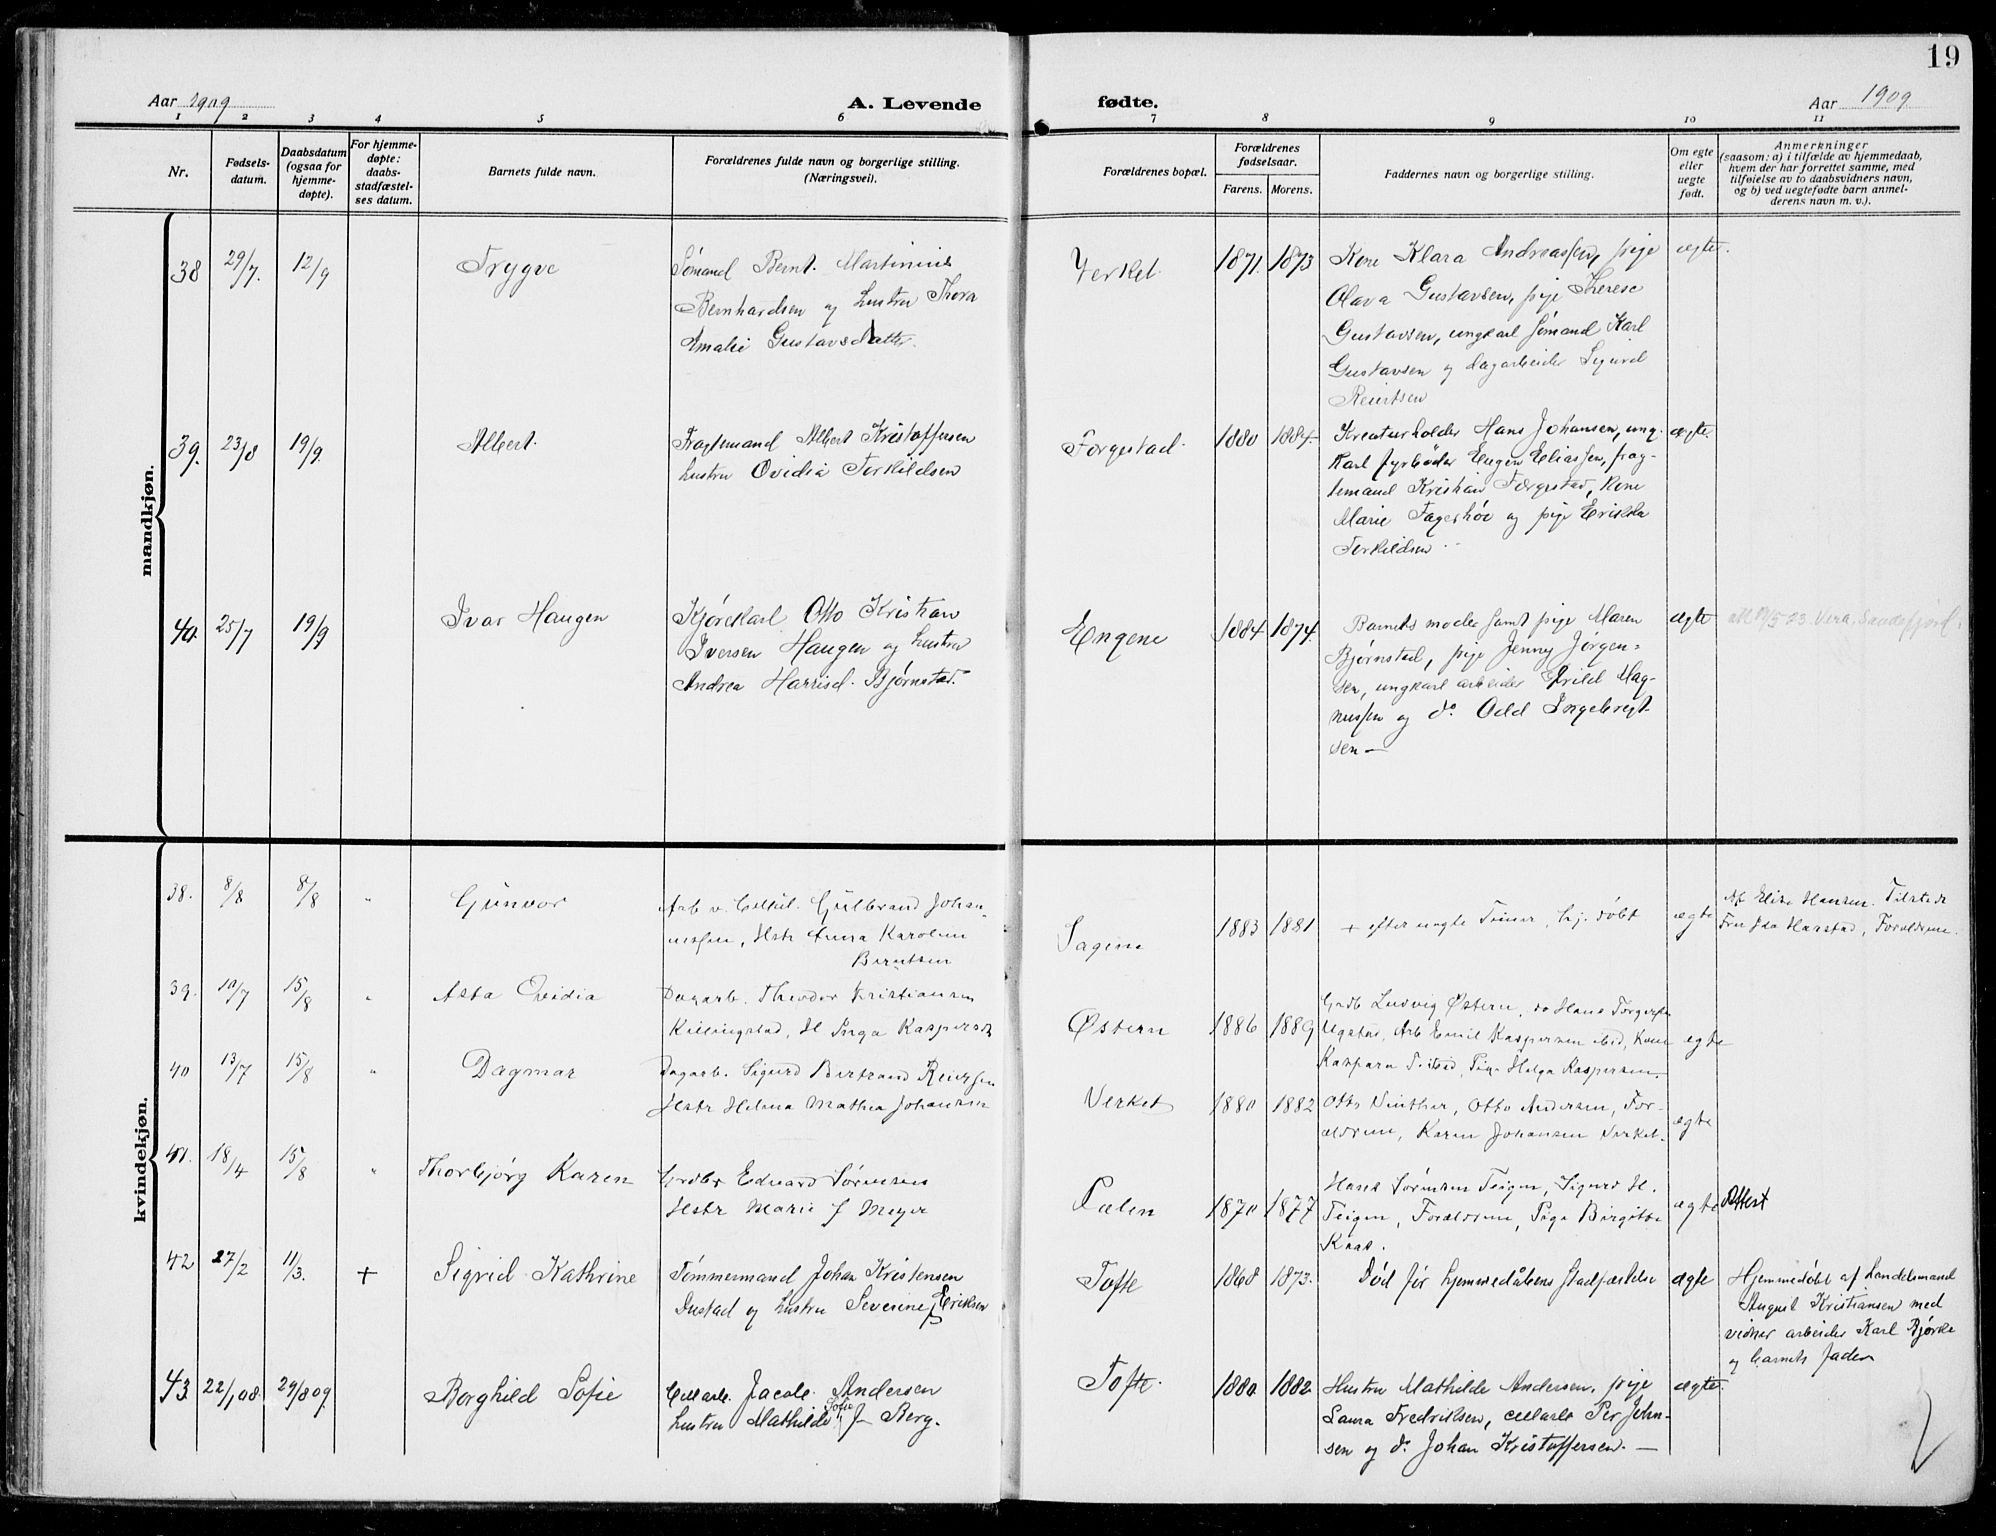 19
Aar 1909
A. Levende
fødte.
Aar 1909
1 2 3 4 5 6 7 8 9 10 11
Nr.
Fødsels-
datum.
Daabsdatum
(ogsaa for
hjemme-
døpte).
For hjemme-
døpte:
daabs-
stadfæstel-
ses datum.
Barnets fulde navn.
Forældrenes fulde navn og borgerlige stilling.
(Næringsvei).
Forældrenes bopæl.
Forældrenes
fødselsaar.
Farens. Morens.
Faddernes navn og borgerlige stilling.
Om egte
eller
uegte
født.
Anmerkninger
(saasom: a) i tilfælde av hjemmedaab,
hvem der har forrettet samme, med
tilføielse av to daabsvidners navn,
og b) ved uegtefødte barn anmel-
derens navn m. v.).
mandkjøn.
38 29/7. 12/9 Trygve
Sømand Bernt. Martinius
Bernhardsen og hustru Thora
Amalie Gustavsdatter.
Verket 1871. 1873
Kone Klara Andreassen, pige
Olava Gustavsen, pige Therese
Gustavsen, ungkarl sømand Karl
Gustavsen og dagarbeider Sigurd
Reiertsen
ægte.
39. 23/8 19/9. Albert.
Fragtemand Albert Kristoffersen
hustru Ovidia Terkildsen
Førgestad. 1880 1884.
Kreaturholder Hans Johansen, ung-
karl fyrbøder Eugen Eliassen, frag-
temand Kristian Færgestad, Kone
Marie Fagerhøi og pige Erikka
Terkildsen
ægte.
40. 25/7 19/9 Ivar Haugen
Kjørekarl Otto Kristian
Iversen Haugen og hustru
Andrea Harrisd. Bjørnstad.
Engene 1884. 1874.
Barnets moder samt pige Maren
Bjørnstad, pige Jenny Jørgen=
sen, ungkarl arbeider Arild Mag-
nussen og do. Odd Ingebregt-
sen —
ægte
Vera, Sandefjord.
kvindekjøn.
38. 8/8 8/8 " Gunvor
Arb v. Cellul. Gulbrand Johan-
nessen, Hstr Anna Karoline
Berntsen
Sagene 1883 1881
+ efter nogle Timer, hj. døbt
ægte
Af Elise Hansen. Tilstede
Fru Ida Harstad, Forældrene.
39. 10/7 15/8 " Asta Ovidia
Dagarb. Theodor Kristiansen
Killingstad, H Inga Kaspersd
Østern 1886 1889
Grdb Ludvig Østern, do Hans
Arb Emil Kaspersen ibid, Kone
Kaspara Pige Helga Kaspersen.
egte
40 13/7 15/8 " Dagmar
Dagarb. Sigurd Bertrand Reiersen
Hstr Helena Mathea Johansen
Verket 1880 1882
Otto Vinther, Otto Andersen, For-
ældrene, Karen Johansen Verket.
ægte
41. 18/4 15/8 " Thorbjørg Karen
Grdbr Edvard Sørensen
Hstr Marie f Meyer
1870 1877
Hans Sørensen Teigen, Sigurd H.
Teigen, Forældrene, Pige Birgitte
Kaas.
ægte
Attest
42 27/2 11/3. + Sigrid Kathrine
Tømmermand Johan Kristensen
Tustad og hustru Severine f Eriksen
Tofte 1868 1873.
Død før hjemmedåbens Stadfæstelse
ægte
Hjemmedøbt af Handelsmand
August Kristiansen med
vidner arbeider Karl Bjørke
og barnets fader
43 22/1 08. 29/8 09. Borghild Sofie
Cellarb. Jacob Andersen
hustru Mathilde Sofie f. Berg.
Tofte. 1880. 1882.
Hustru Mathilde Andersen, pige
Laura Fredriksen, cellarb Per John-
sen og do. Johan Kristoffersen. —
ægte.